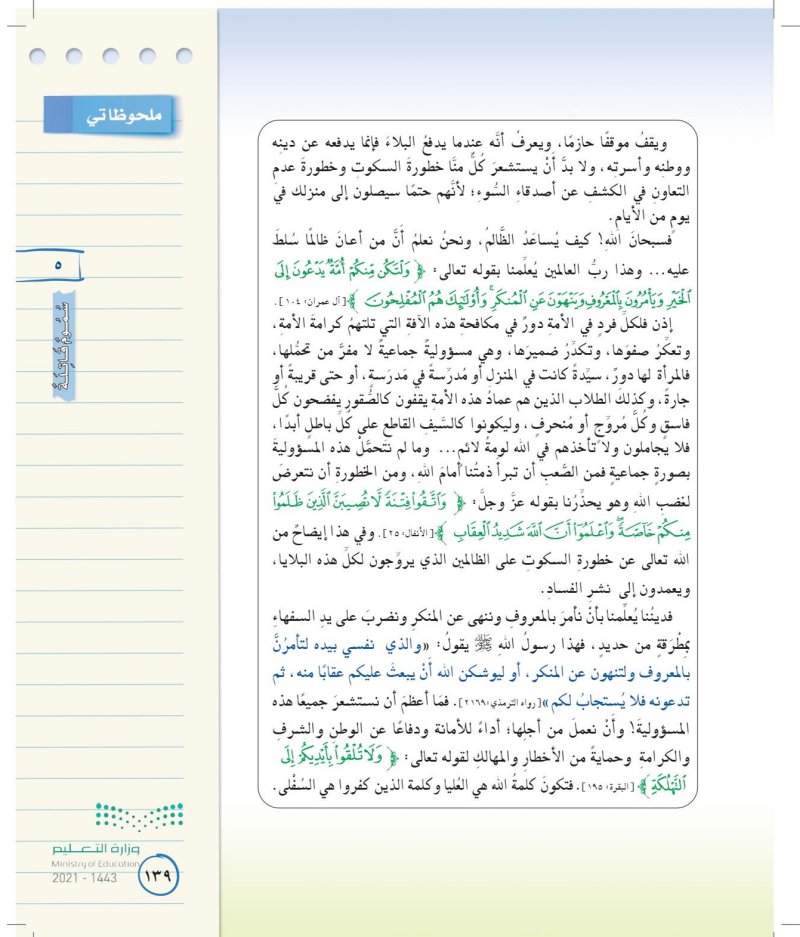 ملحوظاتي
٥
سُمُومٌ قَاتِلَةٌ
ويقفُ موقفًا حازمًا، ويعرفُ أنَّه عندما يدفعُ البلاءَ فإنَّما يدفعه عن دينِه
ووطنِه وأسرتِه، ولا بدَّ أنْ يستشعرَ كُلٌّ منَّا خطورةَ السكوتِ وخطورةَ عدمِ
التعاونِ في الكشفِ عن أصدقاءِ السُّوءِ؛ لأنَّهم حتمًا سيصلون إلى منزلك في
يومٍ من الأيامِ.
فسبحانَ اللهِ! كيف يُساعَدُ الظَّالمُ، ونحنُ نعلمُ أنَّ من أعانَ ظالمًا سُلطَ
عليه... وهذا ربُّ العالمين يُعلِّمنا بقوله تعالى: ﴿ وَلْتَكُن مِّنكُمْ أُمَّةٌ يَدْعُونَ إِلَى
الْخَيْرِ وَيَأْمُرُونَ بِالْمَعْرُوفِ وَيَنْهَوْنَ عَنِ الْمُنكَرِ ۚ وَأُولَٰئِكَ هُمُ الْمُفْلِحُونَ ﴾ [آل عمران: ١٠٤] .
إذن فلكلِّ فردٍ في الأمةِ دورٌ في مكافحةِ هذه الآفةِ التي تلتهمُ كرامةَ الأمةِ،
وتعكِّرُ صفوَها، وتكدِّرُ ضميرَها، وهي مسؤوليةٌ جماعيةٌ لا مفرَّ من تحمُّلها،
فالمرأة لها دورٌ، سيِّدةً كانت في المنزلِ أو مُدرِّسةً في مَدرَسةٍ، أو حتى قريبةً أو
جارةً، وكذلكَ الطلاب الذين هم عمادُ هذه الأمةِ يقفون كالصُّقورِ يفضحون كُلَّ
فاسقٍ وكلَّ مُروِّجٍ أو مُنحرفٍ، وليكونوا كالسَّيفِ القاطعِ على كُلِّ باطلٍ أبدًا،
فلا يجاملون ولا تأخذهم في اللهِ لومةُ لائمٍ... وما لم نتحمَّلْ هذه المسؤوليةَ
بصورةٍ جماعيةٍ فمن الصَّعبِ أن تبرأَ ذمتُنا أمامَ اللهِ، ومن الخطورةِ أن نتعرضَ
لغضبِ اللهِ وهو يحذِّرُنا بقوله عزَّ وجلَّ: ﴿ وَاتَّقُوا فِتْنَةً لَّا تُصِيبَنَّ الَّذِينَ ظَلَمُوا
مِنكُمْ خَاصَّةً ۖ وَاعْلَمُوا أَنَّ اللَّهَ شَدِيدُ الْعِقَابِ ﴾ [الأنفال: ٢٥] . وفي هذا إيضاحٌ من
الله تعالى عن خطورةِ السكوتِ على الظالمين الذي يروِّجون لكلِّ هذه البلايا،
ويعمدون إلى نشرِ الفسادِ.
فديننُا يُعلِّمنا بأنْ نأمرَ بالمعروفِ وننهى عن المنكرِ ونضربَ على يدِ السفهاءِ
بِمِطْرَقةٍ من حديدٍ، فهذا رسولُ اللهِ ﷺ يقولُ: «والذي نفسي بيده لتأمرُنَّ
بالمعروف ولتنهون عن المنكر، أو ليوشكن الله أنْ يبعثَ عليكم عقابًا منه، ثم
تدعونه فلا يُستجابُ لكم» [رواه الترمذي: ٢١٦٩] . فمَا أعظمَ أن نستشعرَ جميعًا هذه
المسؤوليةَ! وأنْ نعملَ من أجلِها؛ أداءً للأمانة ودفاعًا عن الوطنِ والشرفِ
والكرامةِ وحمايةً من الأخطارِ والمهالكِ لقوله تعالى: ﴿ وَلَا تُلْقُوا بِأَيْدِيكُمْ إِلَى
التَّهْلُكَةِ ﴾ [البقرة: ١٩٥] . فتكونَ كلمةُ الله هي العُليا وكلمة الذين كفروا هي السُفْلى.
وزارة التعليم
Ministry of Education
2021 - 1443
١٣٩